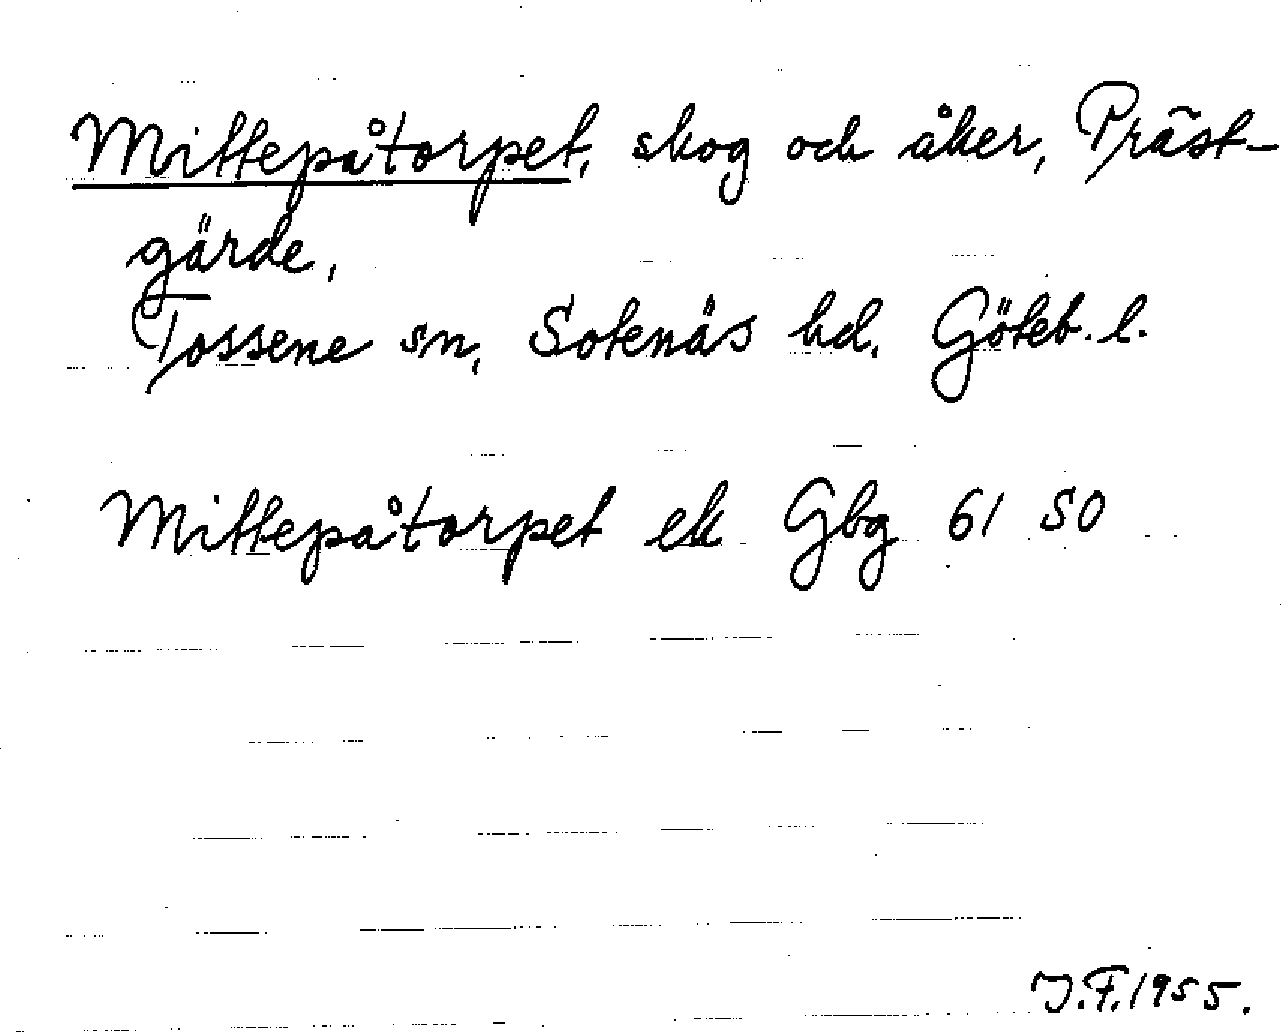 Mittepåtorpet, skog och åker, Präst-
gärde,
Tossene sn, Sotenäs hd, Göteb. l.
Mittepåtorpet ek Gbg 61 SO
J.F. 1955.